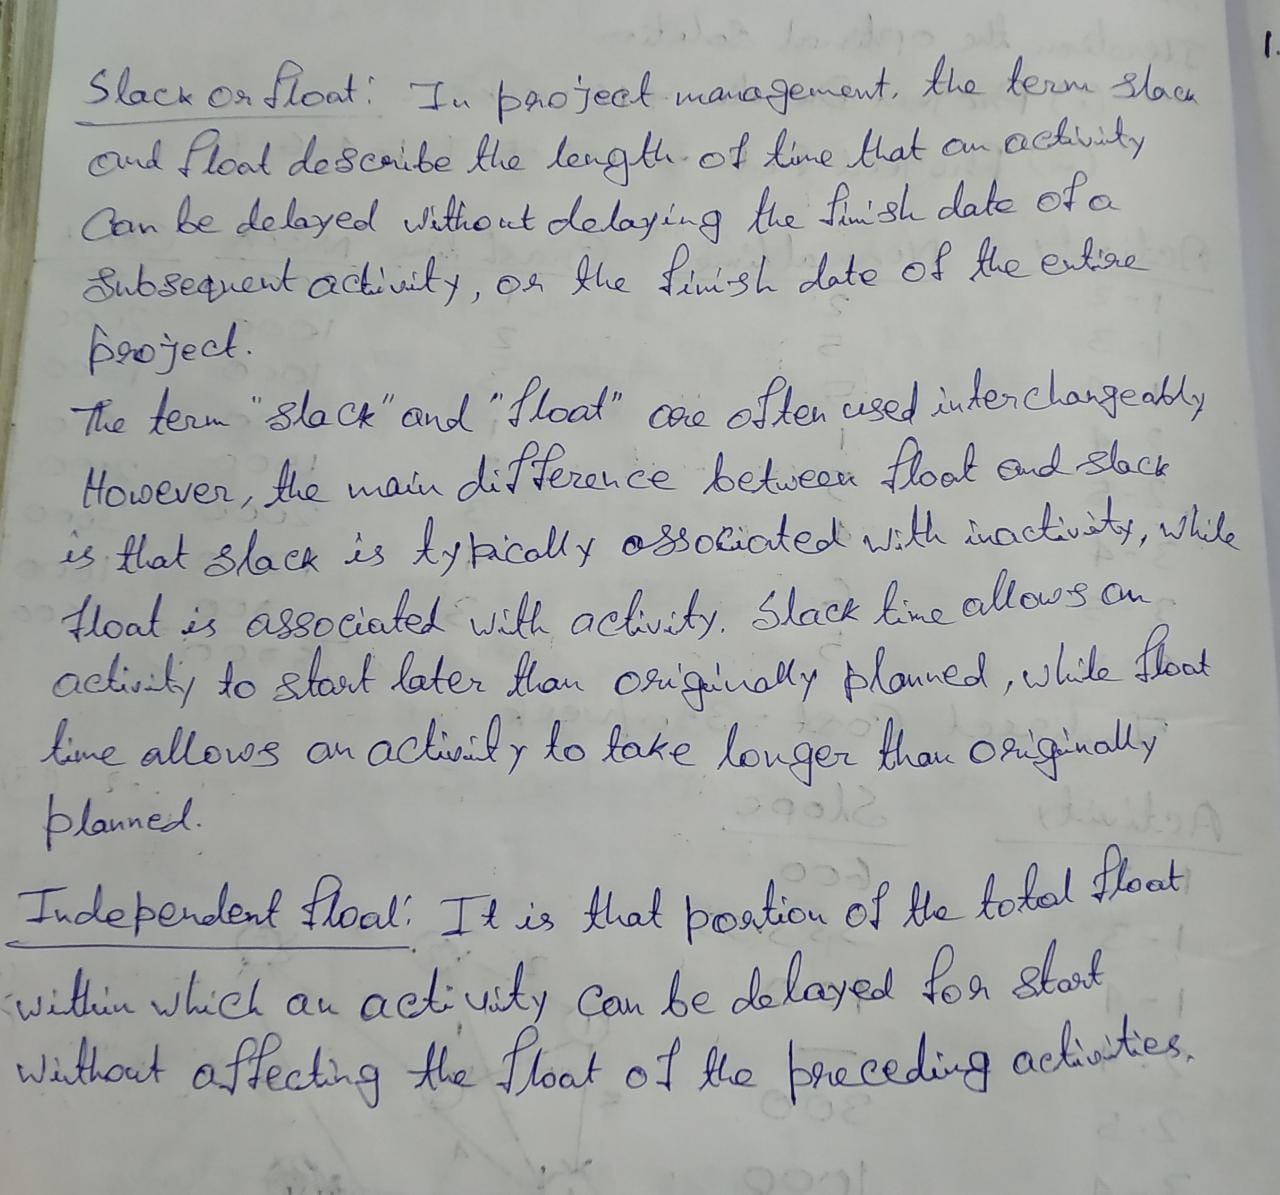 Slack or float: In project management, the term slack
and float describe the length of time that an activity
Can be delayed without delaying the finish date of a
Subsequent activity, or the finish date of the entire
project.
The term "slack" and "float" are often used interchangeably
However, the main difference between float and slack
is that slack is typically associated with inactivity, while
float is associated with activity. Slack time allows an
activity to start later than originally planned, while float
time allows an activity to take longer than originally
planned.
Independent float: It is that portion of the total float
within which an activity can be delayed for start
without affecting the float of the preceding activities.
1.